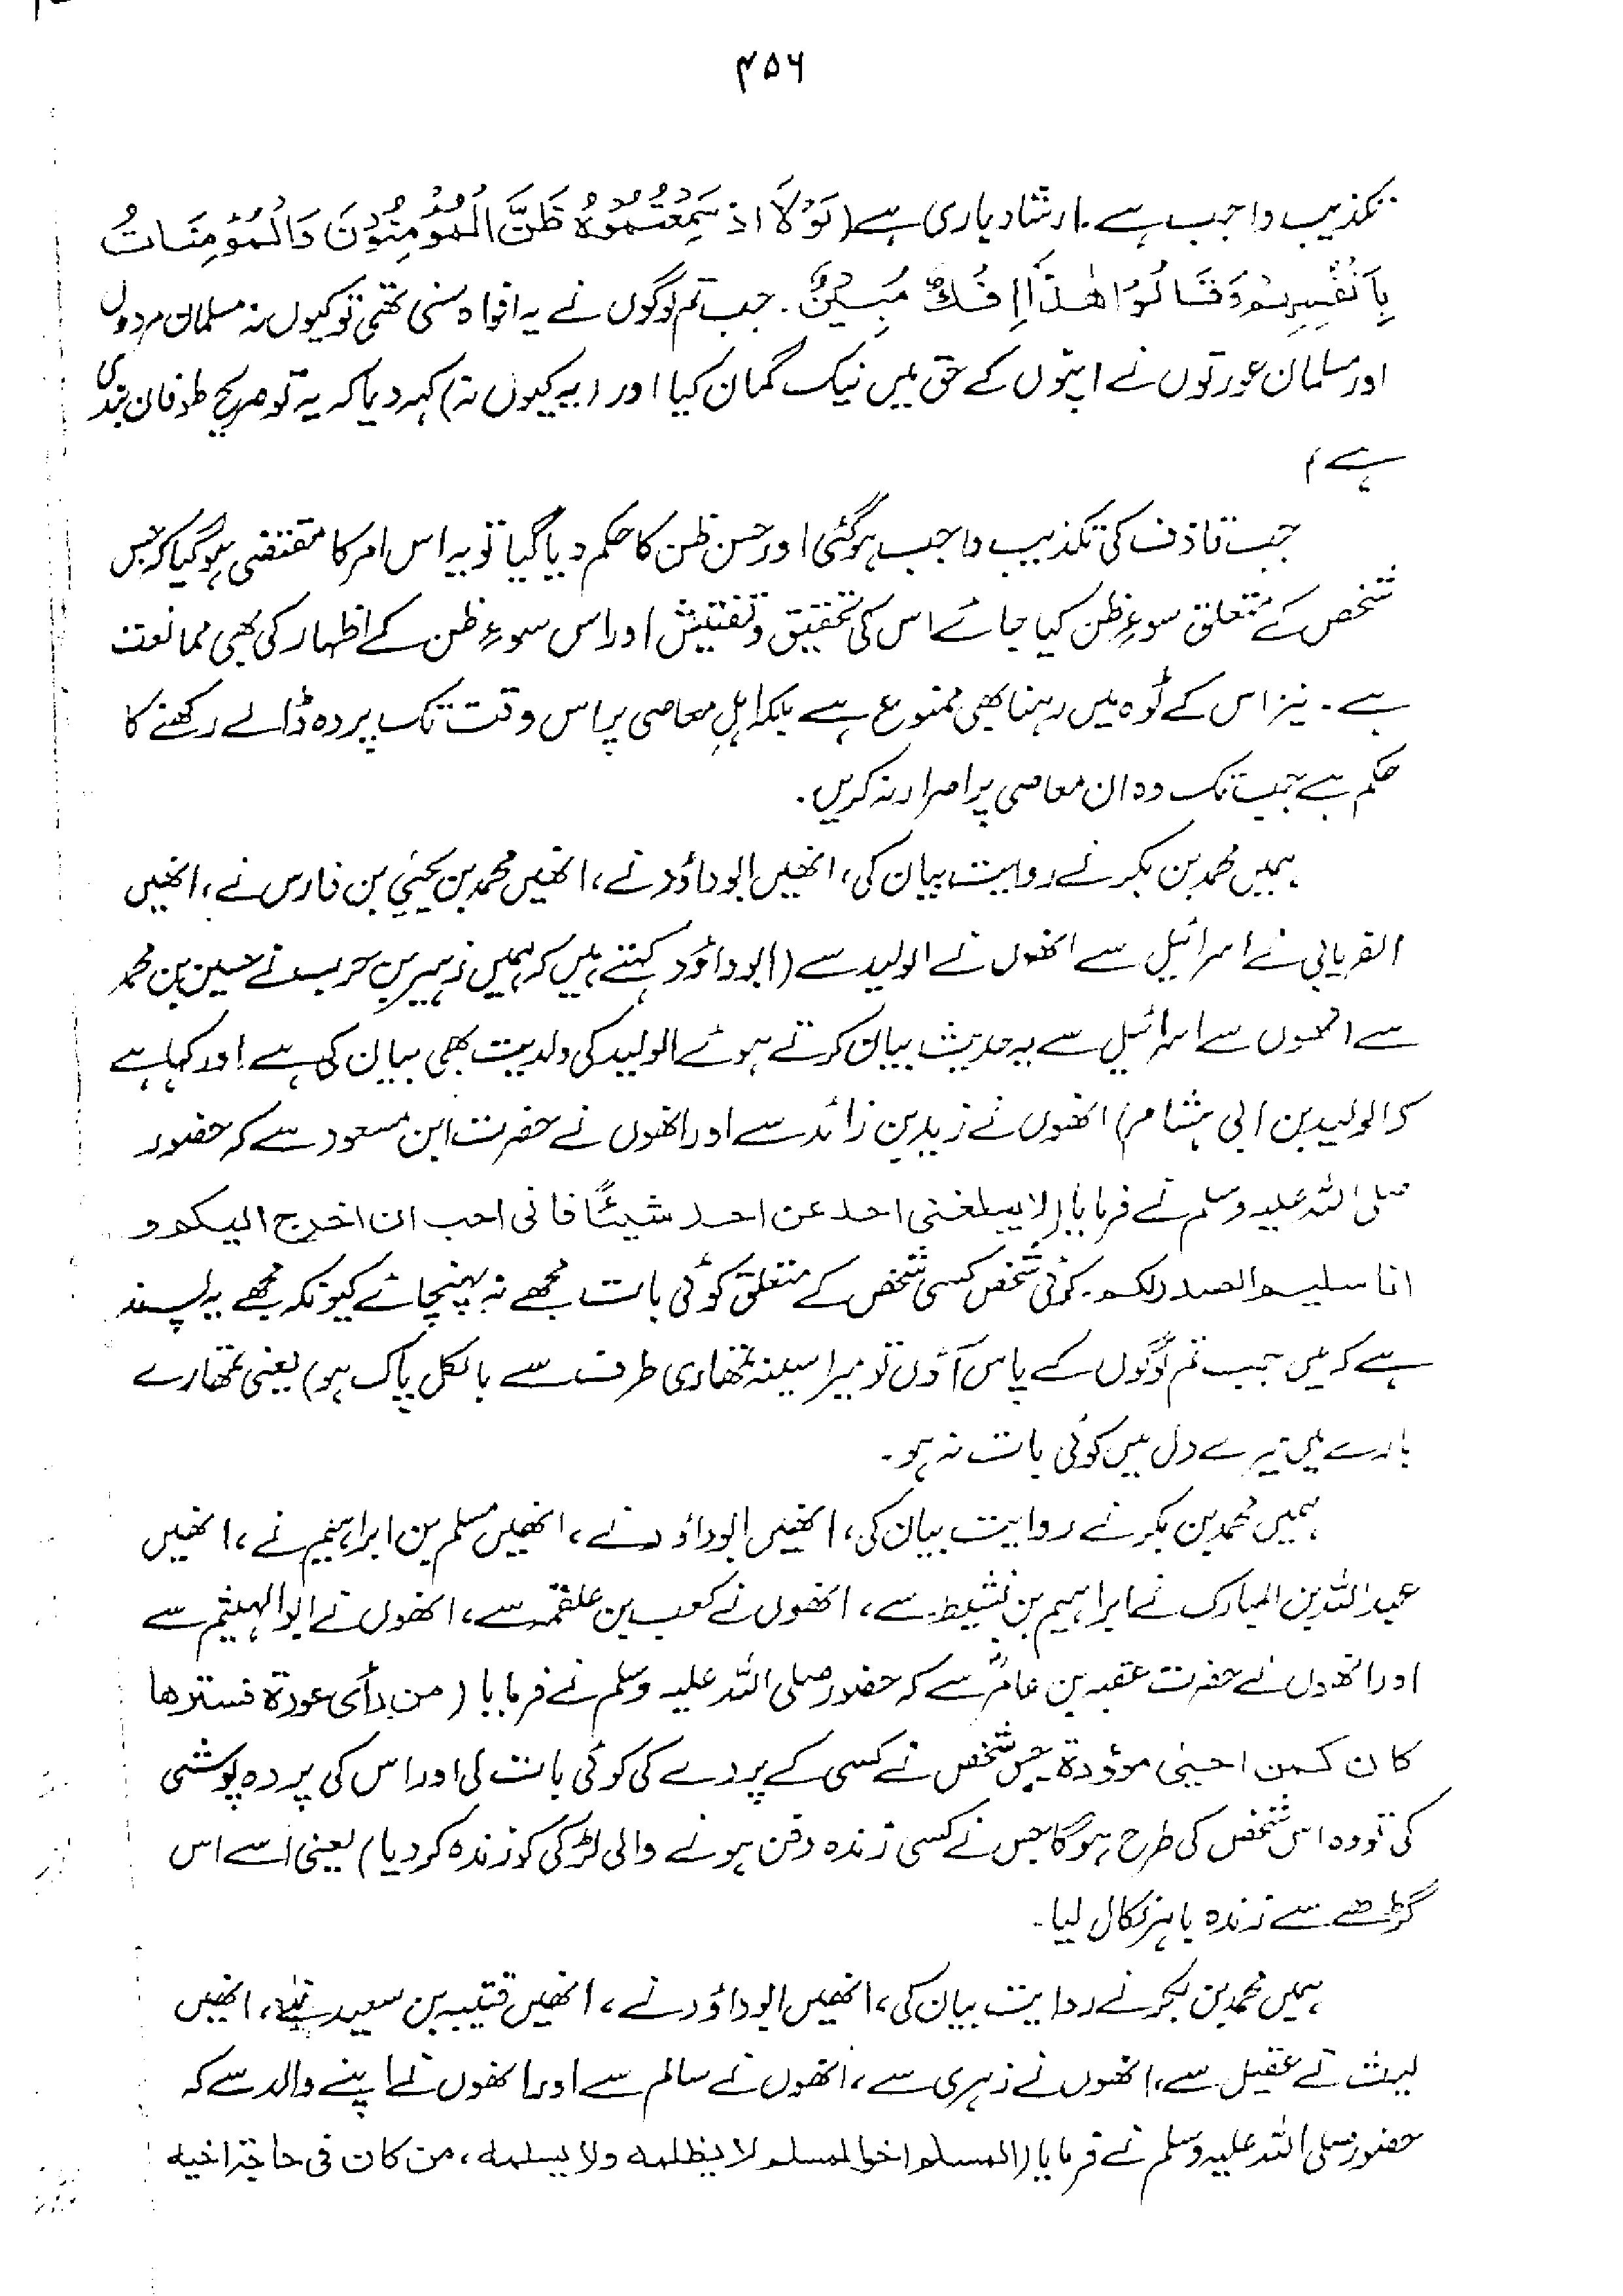 ۴۵۶
تکذیب واجب ہے۔ ارشاد باری ہے (لَوْلَا اذ سَمِعْتُمُوْهُ ظَنَّ الْمُؤْمِنُوْنَ وَالْمُؤْمِنَاتُ
بِاَنْفُسِهِمْ وَقَالُوْا هٰذَا اِفْكٌ مُبِيْنٌ۔ جب تم لوگوں نے یہ افواہ سنی تھی تو کیوں نہ مسلمان مردوں
اور مسلمان عورتوں نے اپنوں کے حق میں نیک گمان کیا اور (یہ کیوں نہ) کہہ دیا کہ یہ تو صریح طوفان بندی
ہے)
جب قاذف کی تکذیب واجب ہوگئی اور حسن ظن کا حکم دیا گیا تو یہ اس امر کا مقتضی ہوگیا کہ جس
شخص کے متعلق سوءِ ظن کیا جائے اس کی تحقیق وتفتیش اور اس سوءِ ظن کے اظہار کی بھی ممانعت
ہے۔ نیز اس کے ٹوہ میں رہنا بھی ممنوع ہے بلکہ اہلِ معاصی پر اس وقت تک پردہ ڈالے رکھنے کا
حکم ہے جب تک وہ ان معاصی پر اصرار نہ کریں۔
ہمیں محمد بن بکر نے روایت بیان کی، انھیں ابوداؤد نے، انھیں محمد بن یحییٰ بن فارس نے، انھیں
الفریابی نے اسرائیل سے انھوں نے الولید سے (ابوداؤد کہتے ہیں کہ ہمیں زہیر بن حرب نے حسین بن محمد
سے انھوں سے اسرائیل سے یہ حدیث بیان کرتے ہوئے الولید کی ولدیت بھی بیان کی ہے اور کہا ہے
کہ الولید بن ابی ہشام) انھوں نے زید بن زائد سے اور انھوں نے حضرت ابن مسعود سے کہ حضور
صلی اللہ علیہ وسلم نے فرمایا (لا يبلغنى احد عن احد شيئًا فانى احب ان اخرج اليكم و
انا سليم الصدر لكم۔ کوئی شخص کسی شخص کے متعلق کوئی بات مجھے نہ پہنچائے کیونکہ مجھے یہ پسند
ہے کہ میں جب تم لوگوں کے پاس آؤں تو میرا سینہ تمھاری طرف سے بالکل پاک ہو) یعنی تمھارے
بارے میں میرے دل میں کوئی بات نہ ہو۔
ہمیں محمد بن بکر نے روایت بیان کی، انھیں ابوداؤد نے، انھیں مسلم بن ابراہیم نے، انھیں
عبداللہ بن المبارک نے ابراہیم بن نشیط سے، انھوں نے کعب بن علقمہ سے، انھوں نے ابوالہیثم سے
اور انھوں نے حضرت عقبہ بن عامرؓ سے کہ حضور صلی اللہ علیہ وسلم نے فرمایا (من رأى عورة فسترها
كان كمن احيى موؤدة جس شخص نے کسی کے پردے کی کوئی بات لی اور اس کی پردہ پوشی
کی تو وہ اس شخص کی طرح ہوگا جس نے کسی زندہ دفن ہونے والی لڑکی کو زندہ کردیا) یعنی اسے اس
گڑھے سے زندہ باہر نکال لیا۔
ہمیں محمد بن بکر نے روایت بیان کی، انھیں ابوداؤد نے، انھیں قتیبہ بن سعید نے، انھیں
لیث نے عقیل سے، انھوں نے زہری سے، انھوں نے سالم سے اور انھوں نے اپنے والد سے کہ
حضور صلی اللہ علیہ وسلم نے فرمایا (المسلم اخوالمسلم لا يظلمه ولا يسلمه، من كان فى حاجة اخيه